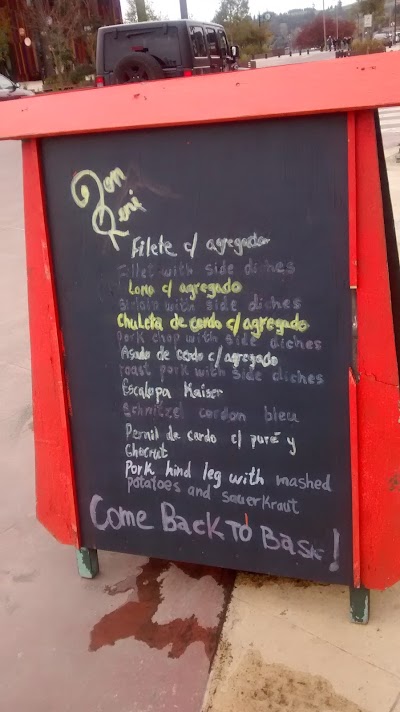 Don
René
Filete c/ agregado
Fillet with side diches
Lomo c/ agregado
Sirloin with side diches
Chuleta de cerdo c/ agregado
Pork chop with side diches
Asado de cerdo c/ agregado
roast pork with side diches
Escalopa Kaiser
Schnitzel cordon bleu
Pernil de cerdo c/ puré y
Chocrut
Pork hind leg with mashed
potatoes and sauerkraut
Come Back To Bask!